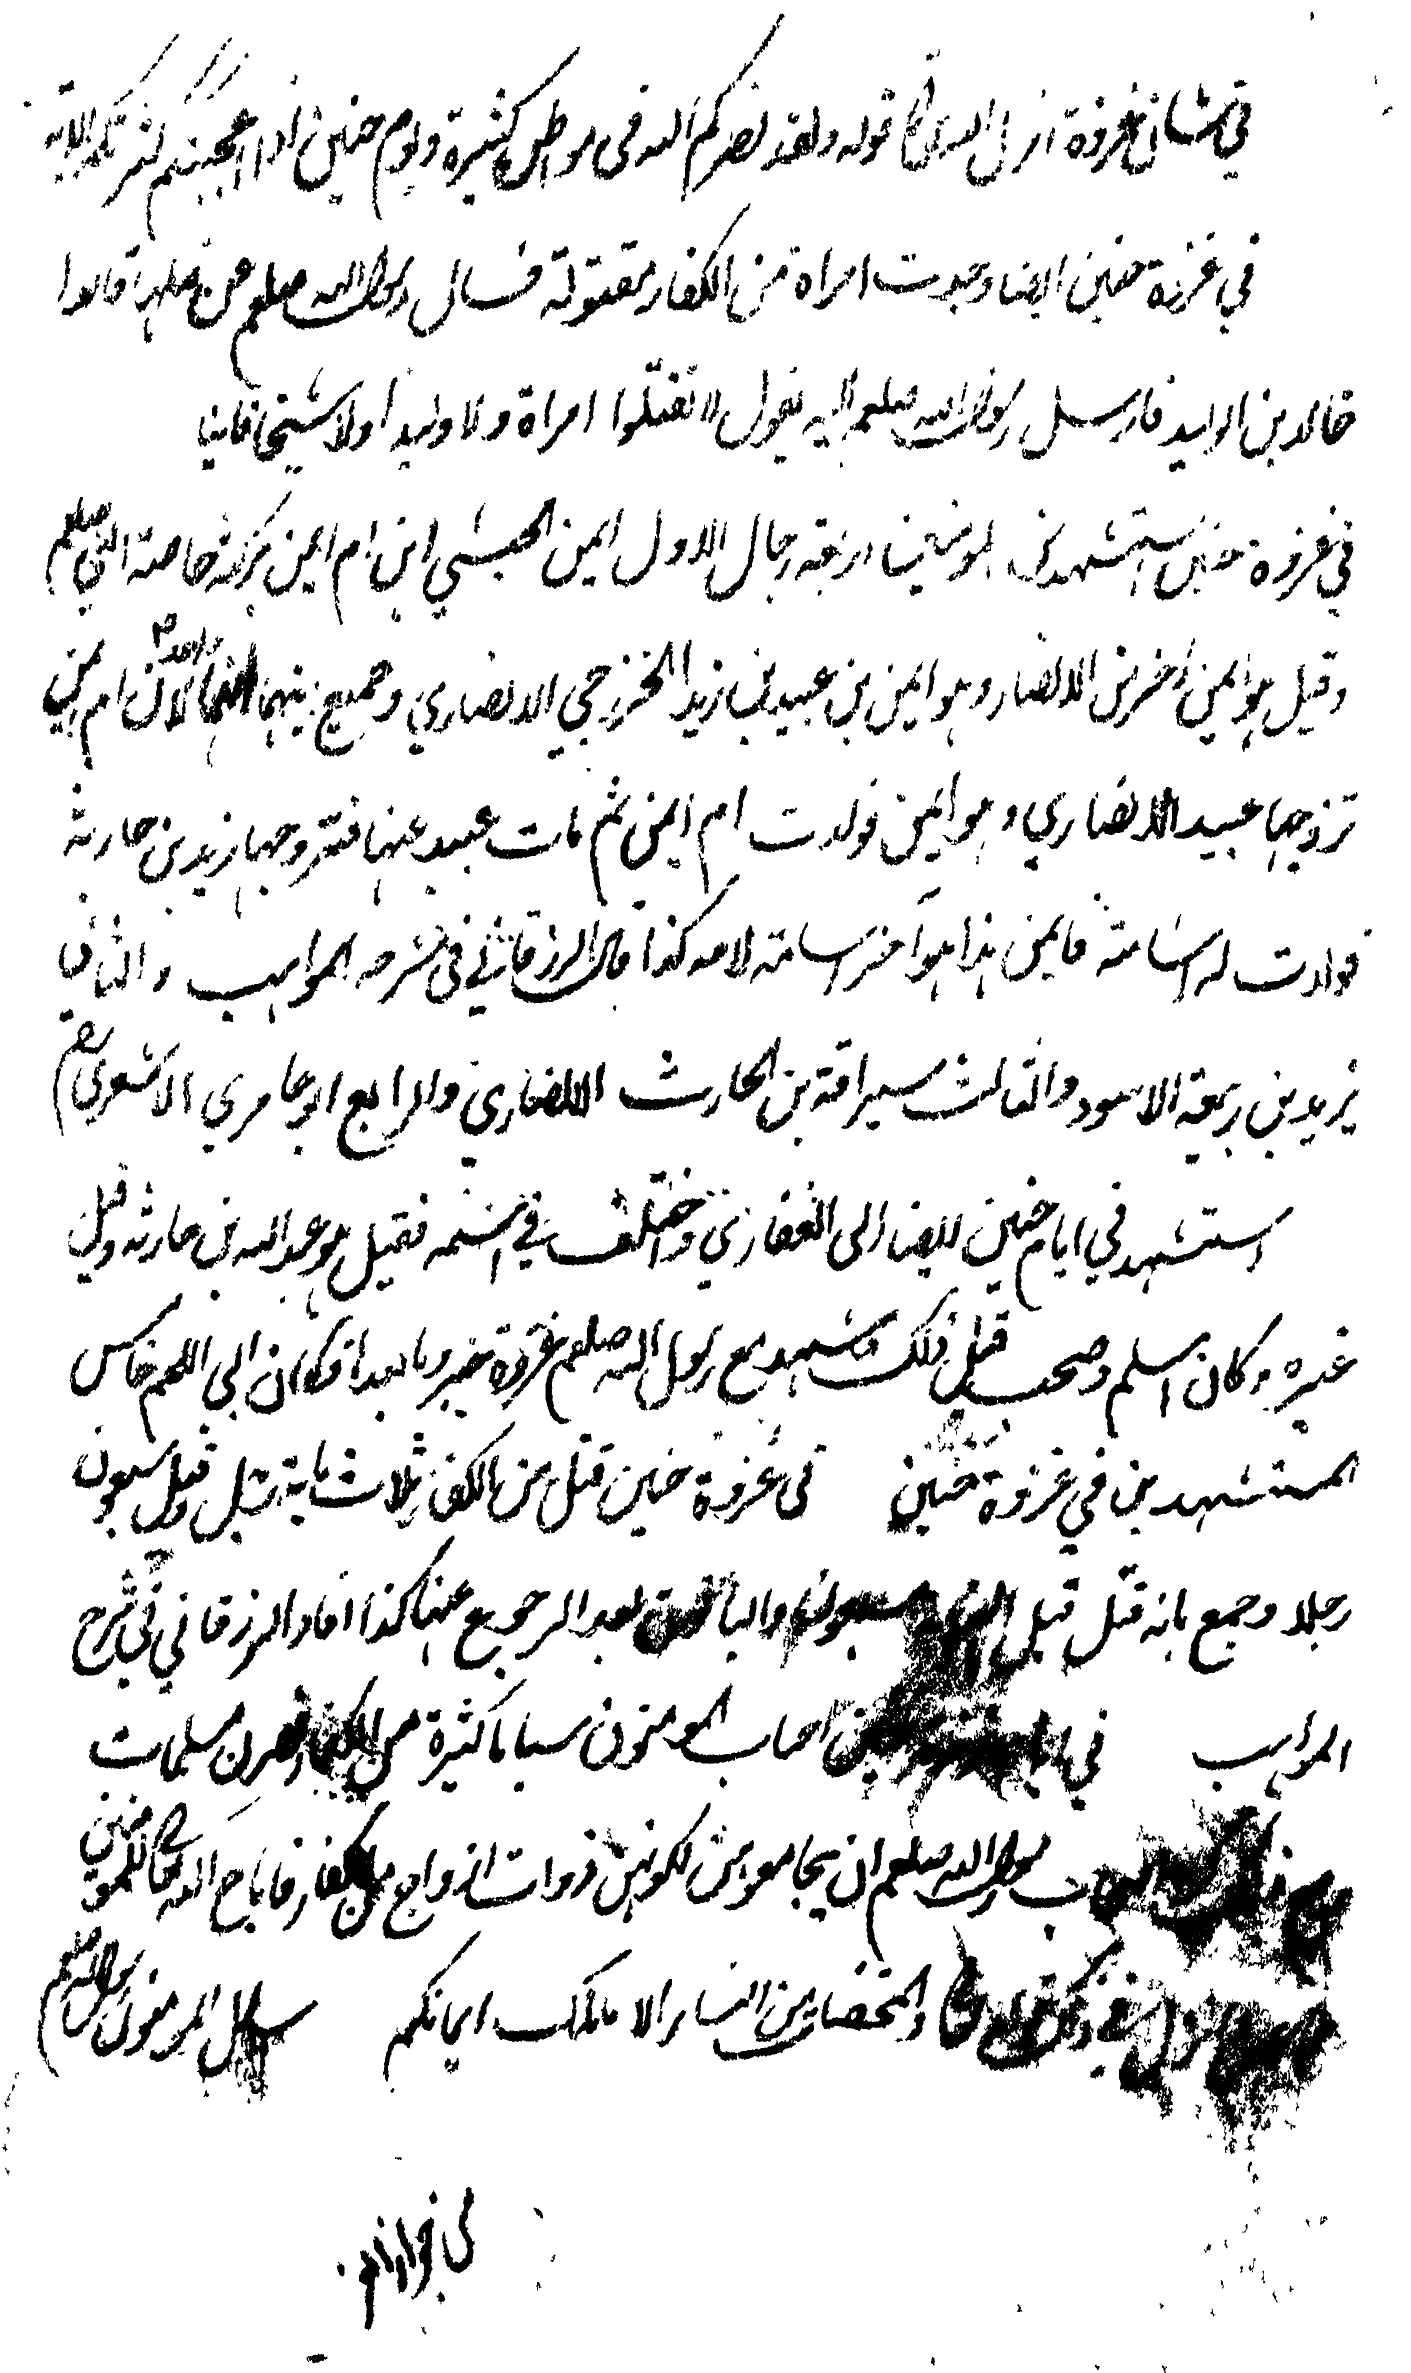 في شان غزوة انزل الله تعالى قوله ولقد نصركم الله في مواطن كثيرة ويوم حنين اذ اعجبتكم كثرتكم الاية
في غزوة حنين ايضا وجدت امراة من الكفار مقتولة فسال رسول الله صلعم عن قتلها قالوا
خالد بن الوليد فارسل رسول الله صلعم اليه يقول لا تقتلوا امراة ولا وليدا ولا شيخا فانيا
في غزوة حنين استشهد من المومنين اربعة رجال الاول ايمن الحبشي ابن ام ايمن بركة حاضنة النبي صلعم
وقيل هو ايمن اخر من الانصار وهو ايمن بن عبيد بن زيد الخزرجي الانصاري وجمع بينهما لان ام ايمن
تزوجها عبيد الانصاري وهو ايمن فولدت ام ايمن ثم مات عبيد عنها فتزوجها زيد بن حارثة
فولدت له اسامة فايمن هذا هو اخو اسامة لامه كذا قال الزرقاني في شرحه المواهب والثاني
يزيد بن ربيعة الاسود والثالث سراقة بن الحارث الانصاري والرابع ابو عامري الاشعري رضي
استشهد في ايام حنين ايضا ابي الغفاري واختلف في اسمه فقيل هو عبد الله بن حارثة وقيل
غيره وكان اسلم وصحب قبل ذلك وشهد مع رسول الله صلعم غزوة خيبر وما بعدها فكان ابي اللحم خامس
المستشهدين في غزوة حنين في غزوة حنين قتل من الكفار ثلاث ماية رجل وقيل سبعون
رجلا وجمع بانه قتل قبل سبعون والباقون بعد الرجوع عنها كذا افاد الزرقاني في شرح
المواهب في اصاب المومنون سبايا كثيرة من الكفار وصرن مسلمات
رسول الله صلعم ان يجامعوهن لكونهن ذوات ازواج من الكفار فاباح الله تعالى للمومنين
في ذلك قوله تعالى والمحصنات من النساء الا ما ملكت ايمانكم سال المومنون رسول الله صلعم